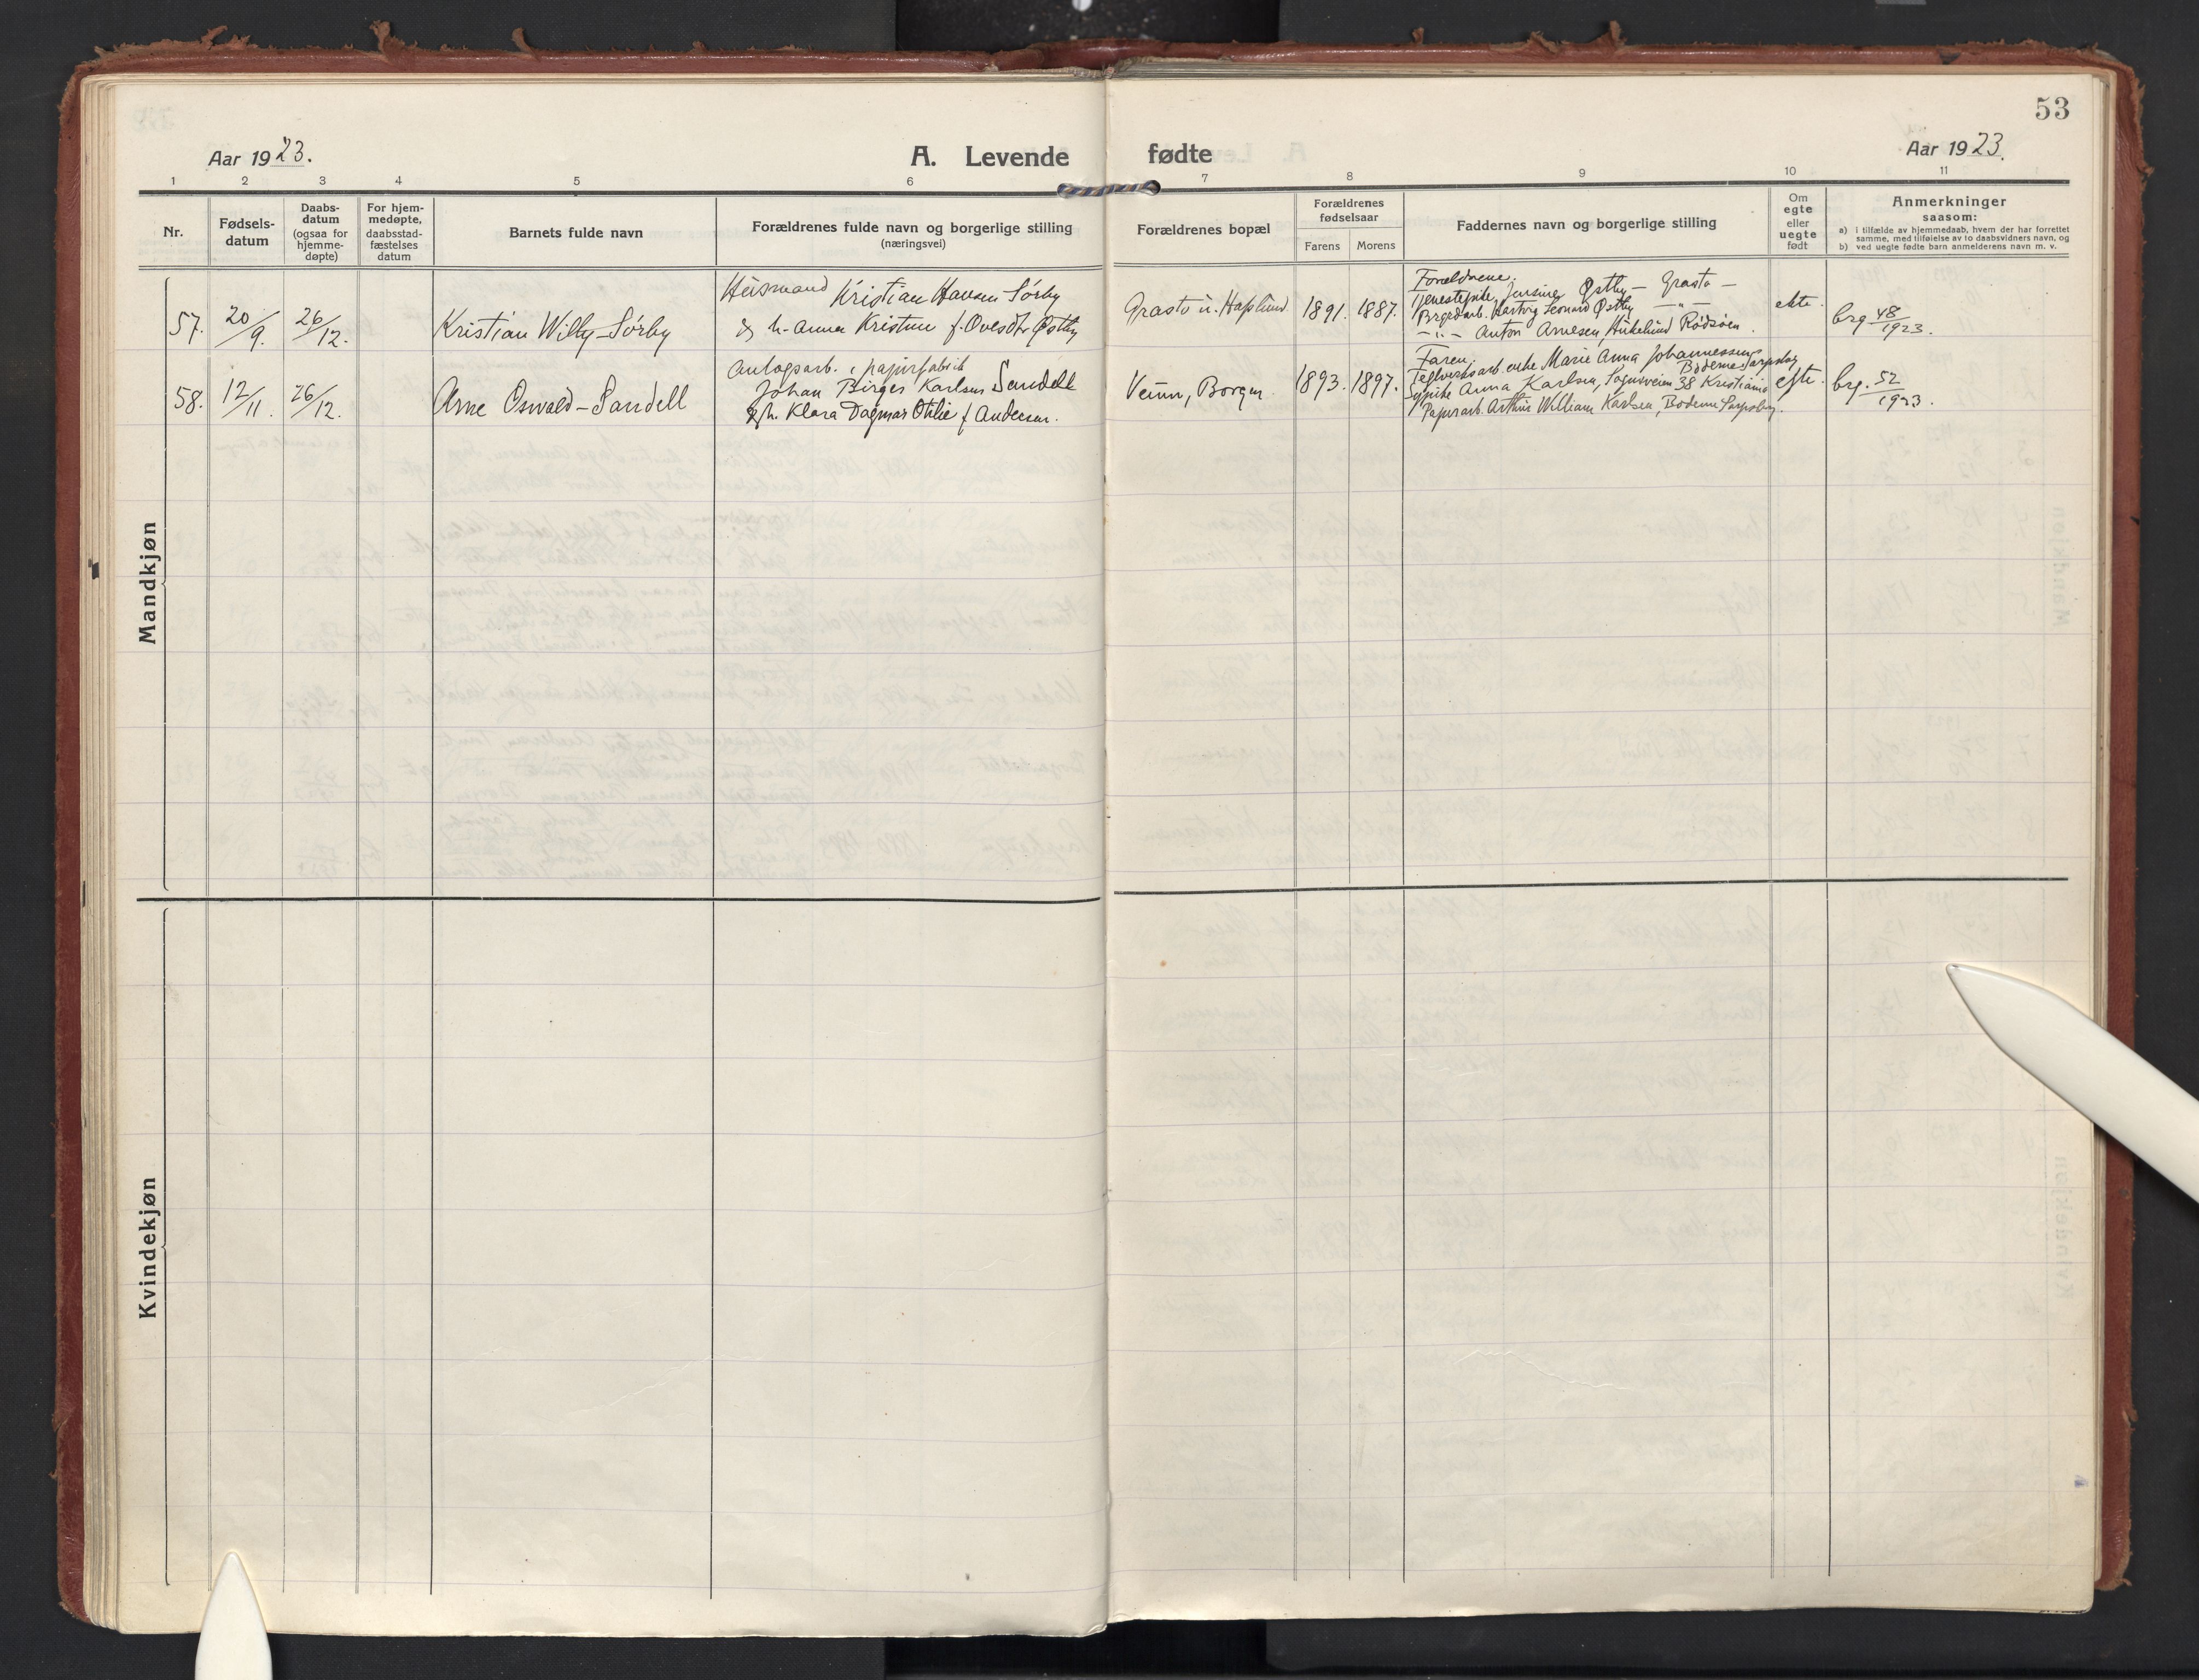 53
Aar 1923.
A. Levende fødte
Aar 1923.
1 2 3 4 5 6 7 8 9 10 11
Nr.
Fødsels-
datum
Daabs-
datum
(ogsaa for
hjemme-
døpte)
For hjem-
medøpte,
daabsstad-
fæstelses
datum
Barnets fulde navn
Forældrenes fulde navn og borgerlige stilling
(næringsvei)
Forældrenes bopæl
Forældrenes
fødselsaar
Farens Morens
Faddernes navn og borgerlige stilling
Om
egte
eller
uegte
født
Anmerkninger
saasom:
a) i tilfælde av hjemmedaab, hvem der har forrettet
samme, med tilføielse av to daabsvidners navn, og
b) ved uegte fødte barn anmelderens navn m. v.
Mandkjøn
57. 20/9. 26/12. Kristian Willy Sørby
Husmand Kristian Hansen Sørby
& h. Anna Kristine f. Ovesdtr Østby
Grasto u. Haslund 1891. 1887.
Forældrene.
Tjenestepike Jensine Østby – Grasto –
Brgdarb. Hartvig Leonard Østby – " –
– " – Anton Arnesen, Rødsøen.
ekte.
brg 48/1923.
58. 12/11. 26/12. Arne Oswald Sandell
Anlægsarb. i papirfabrik
Johan Birger Karlsen Sandell
& h. Klara Dagmar Otilie f. Andersen.
Borgen. 1893. 1897.
Faren.
Teglverksarb. enke Marie Anna Johannessen,
Boderne Sarpsborg
Sypike Anna Karlsen, Sognsveien 38 Kristiania
Papirarb. Arthur William Karlsen, Boderne Sarpsborg.
ekte.
brg. 52/1923.
Kvindekjøn